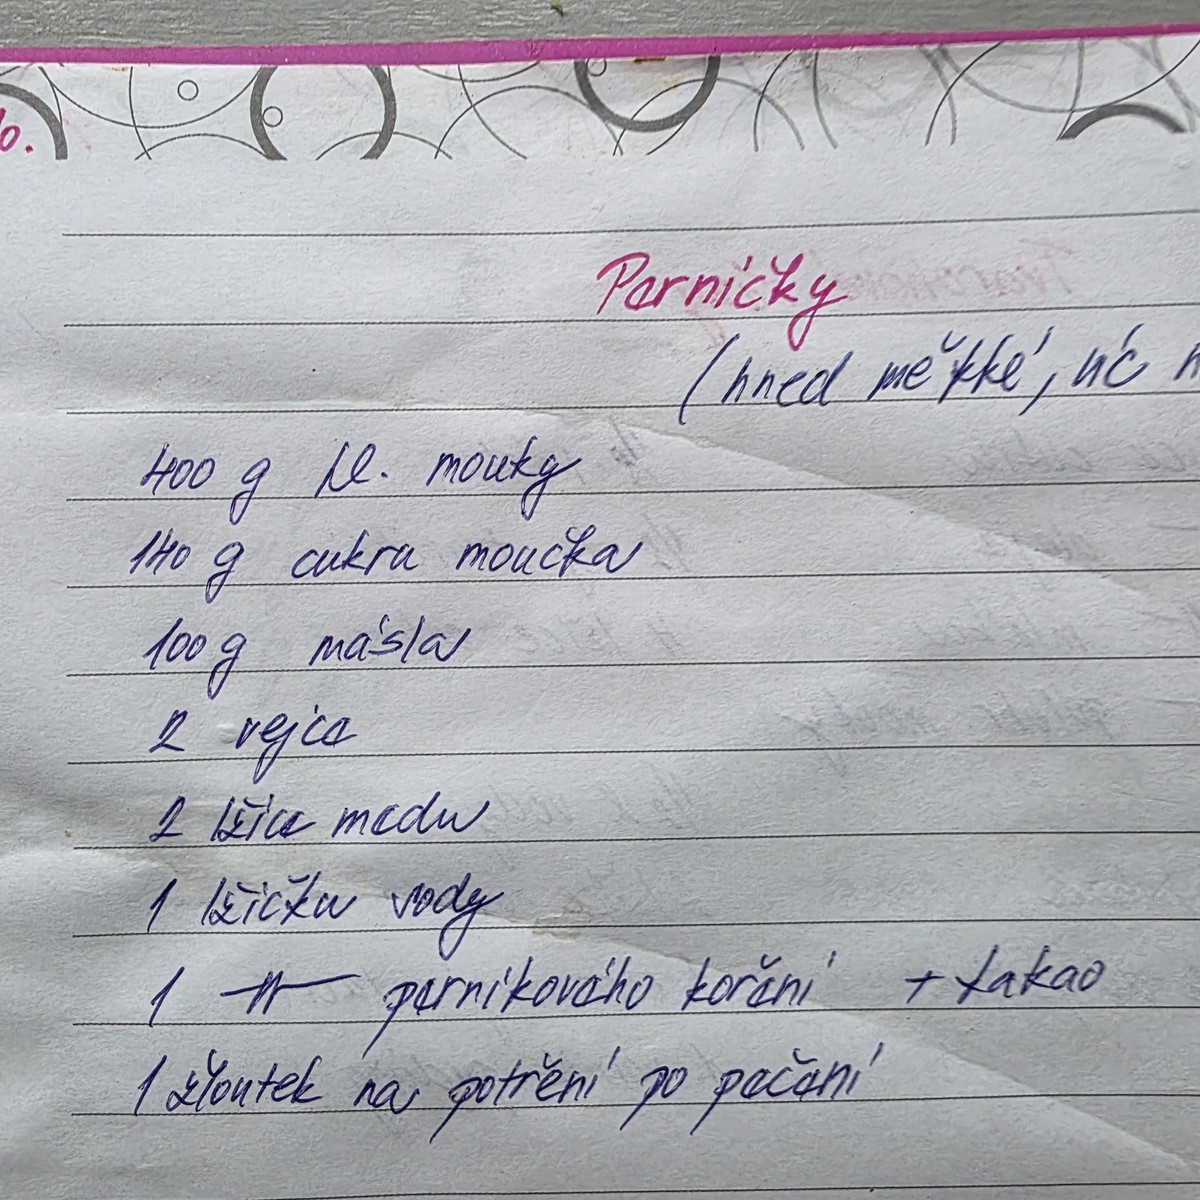 Perníčky
(hned měkké, nč
400 g hl. mouky
140 g cukru moučka
100 g másla
2 vejce
2 lžíce medu
1 lžička vody
1 —"— perníkového koření + kakao
1 žloutek na potření po pečení